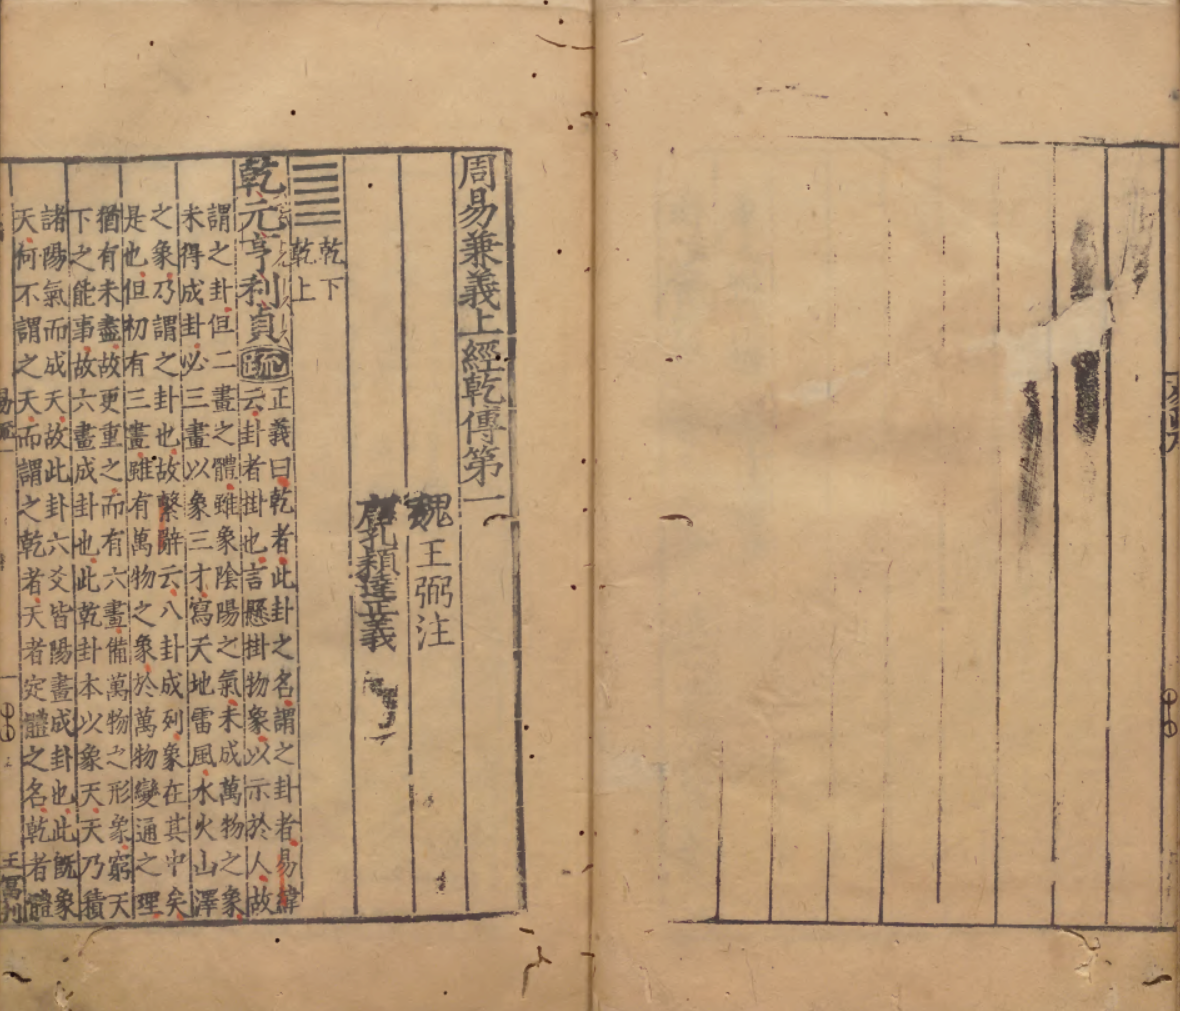 周易兼義上經乾傳第一
魏王弼注
孔穎達正義
乾下
乾上
乾元亨利貞疏正義曰乾者此卦之名謂之卦者易緯
云卦者掛也言懸掛物象以示於人故
謂之卦但二畫之體雖象陰陽之氣未成萬物之象
未得成卦必三畫以象三才寫天地雷風水火山澤
之象乃謂之卦也故繫辭云八卦成列象在其中矣
是也但初有三畫雖有萬物之象於萬物變通之理
猶有未盡故更重之而有六畫備萬物之形象窮天
下之能事故六畫成卦也此乾卦本以象天天乃積
諸陽氣而成天故此卦六爻皆陽畫成卦也此既象
天何不謂之天而謂之乾者天者定體之名乾者體